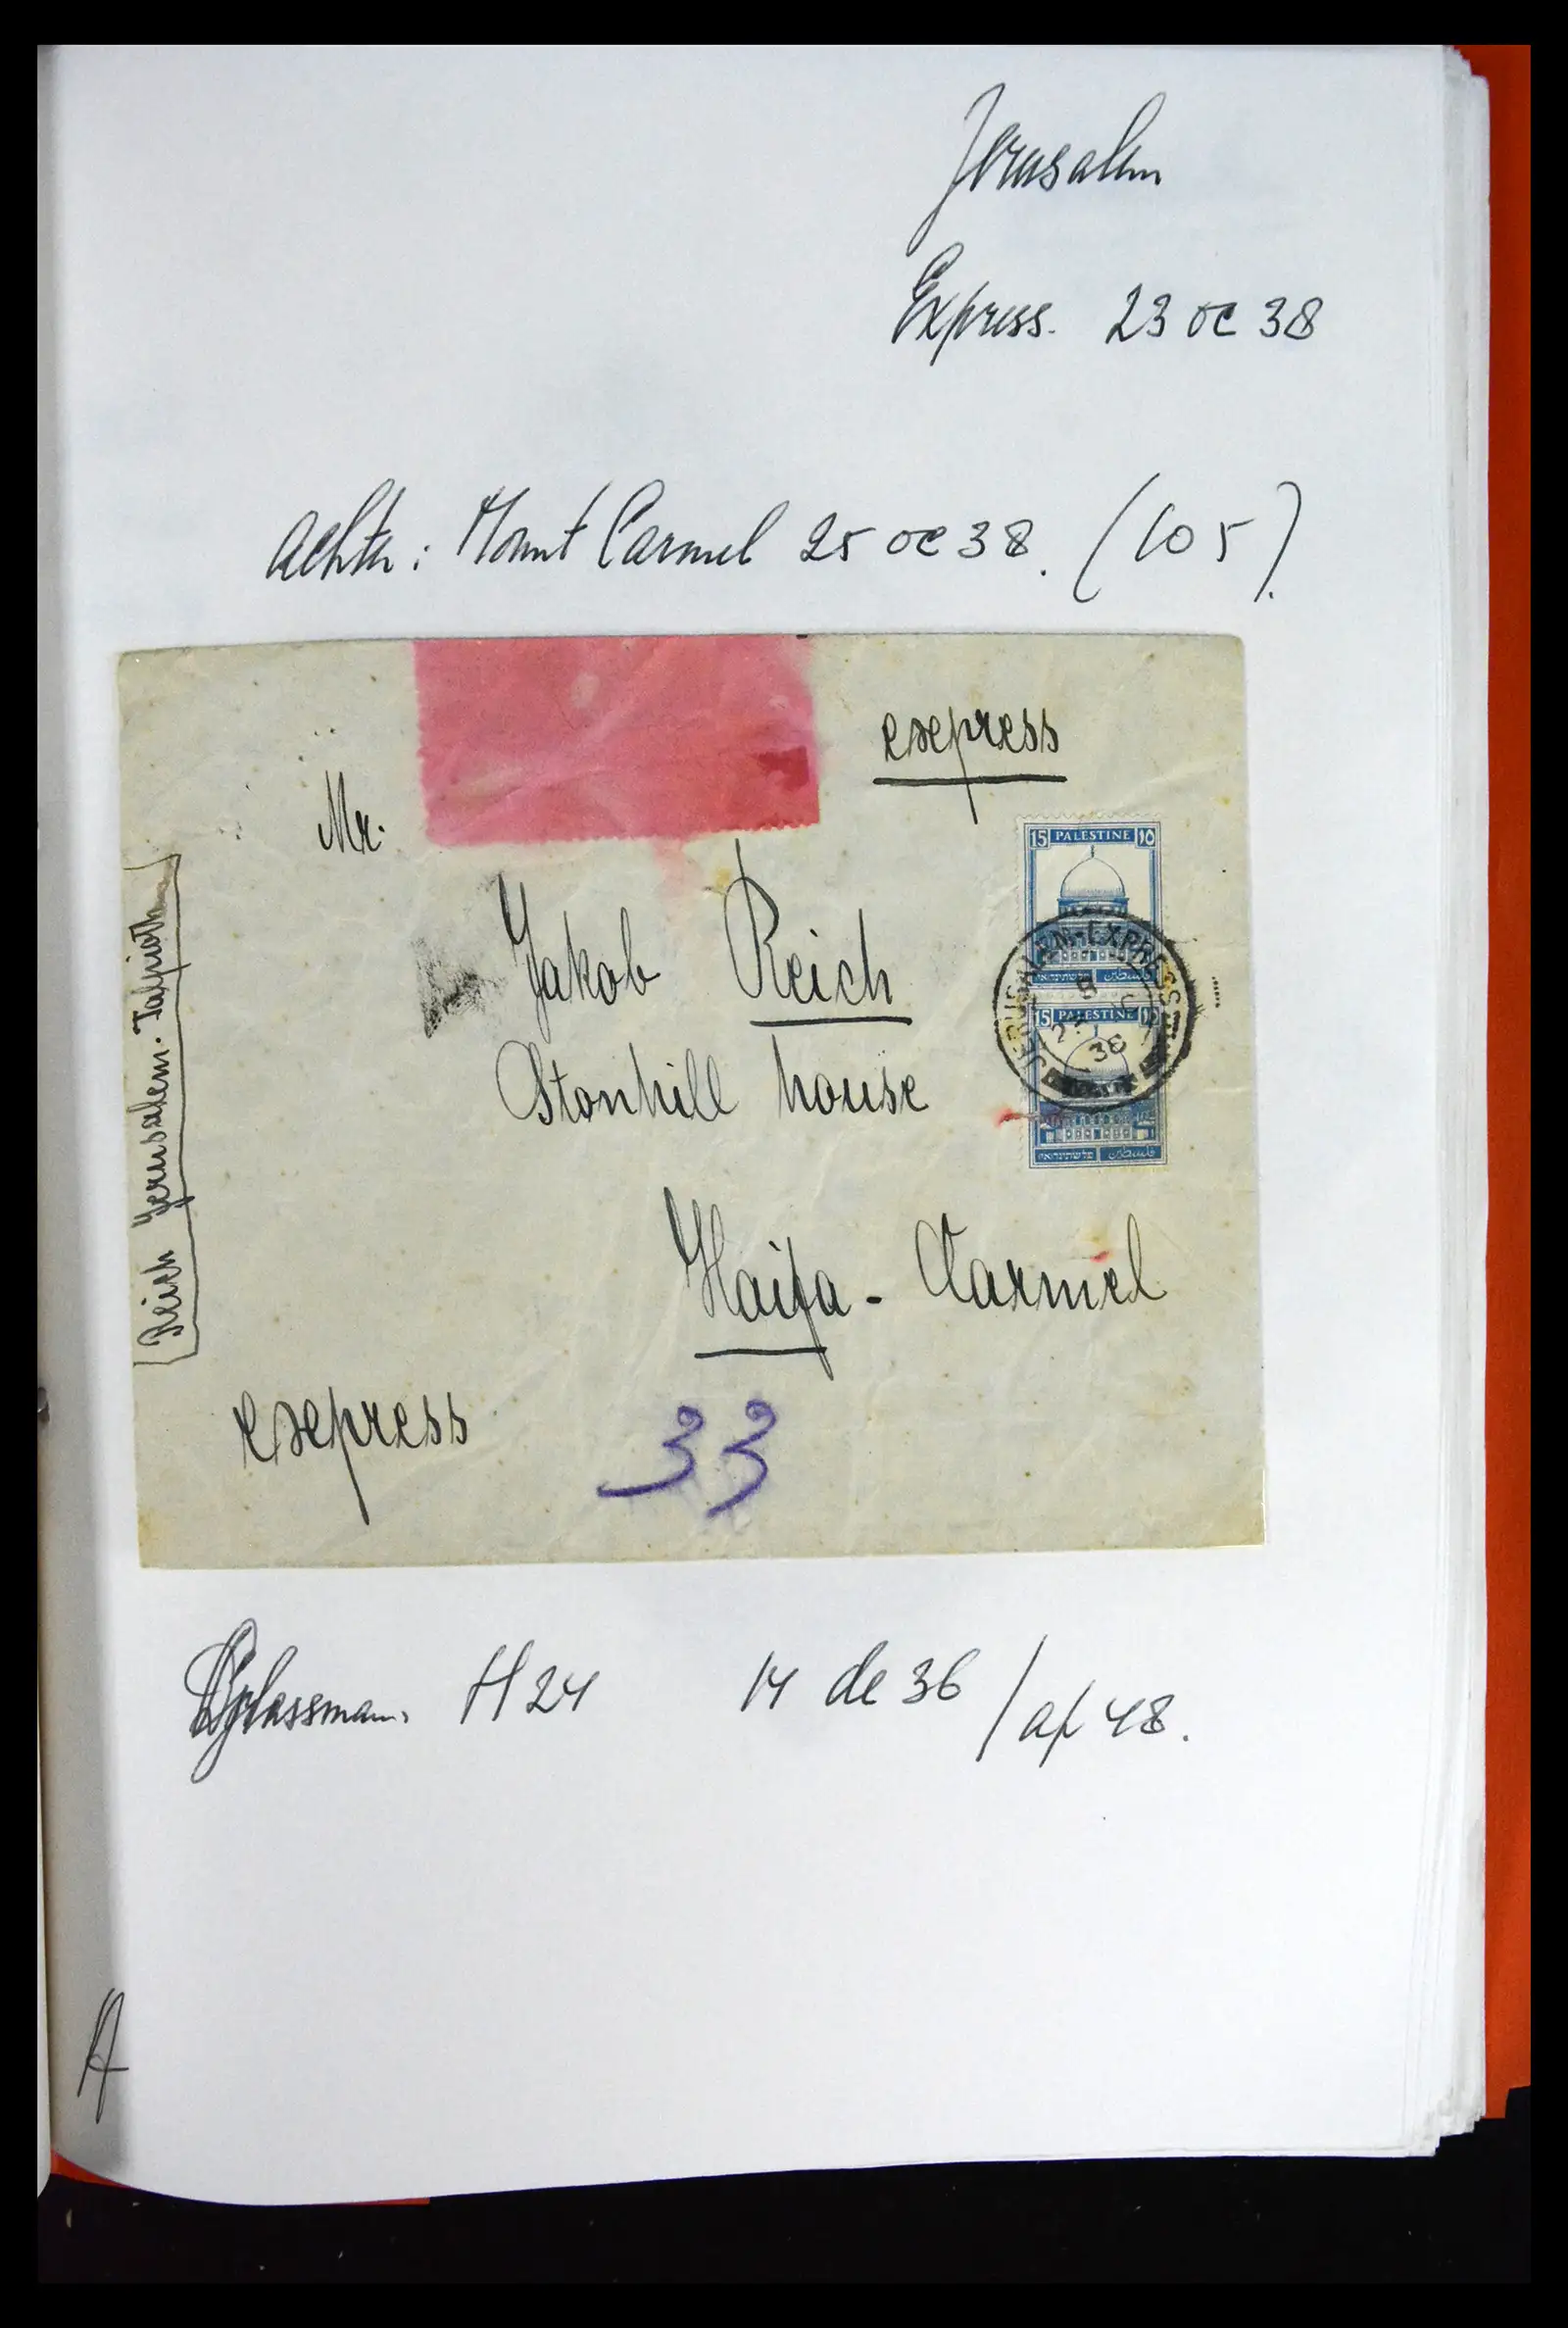 Jerusalem
Express. 23 oc 38
achter: Mount Carmel 25 oc 38. (105).
express
Mr.
Jakob Reich
Stonhill house
Haifa - Carmel
express
33
Reich Yerusalem. Talpioth
15 PALESTINE ١٥
פלשתינה א״י فلسطين
JERUSALEM-EXPRESS
38
15 PALESTINE ١٥
פלשתינה א״י فلسطين
glassman. H24 14 de 36 / ap 48.
A